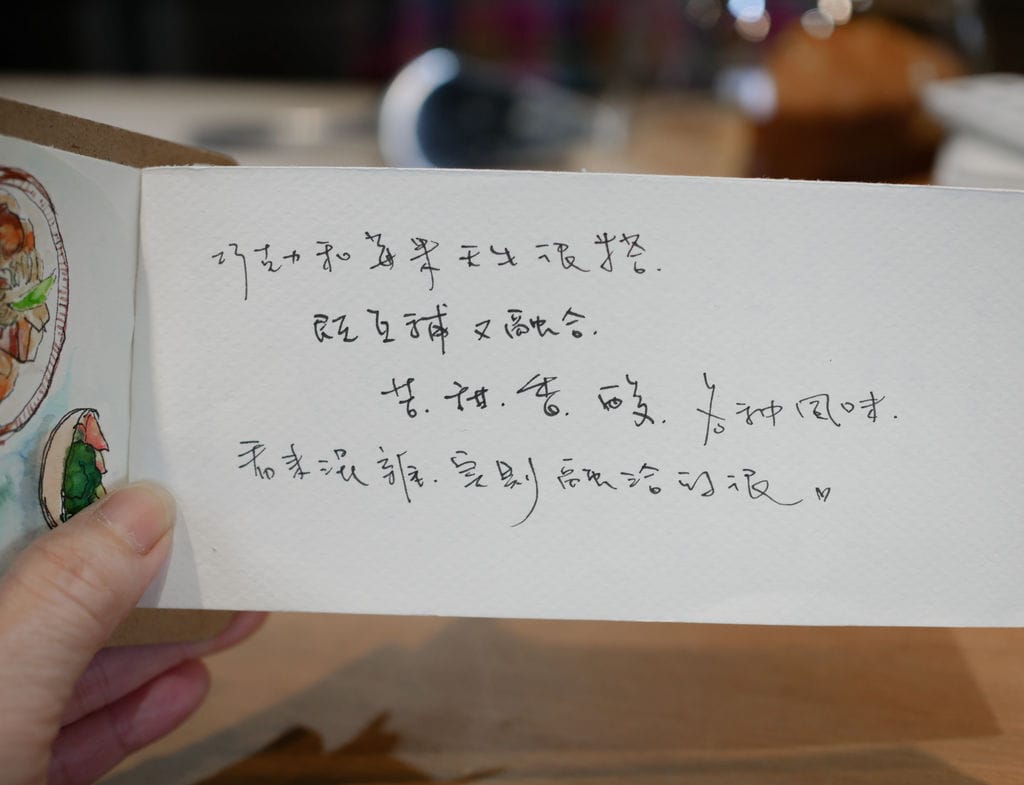 巧劼和莓果天生很搭.
既互補又融合.
苦.甜.香.酸.各种風味.
看來混雜.實則融洽的很。